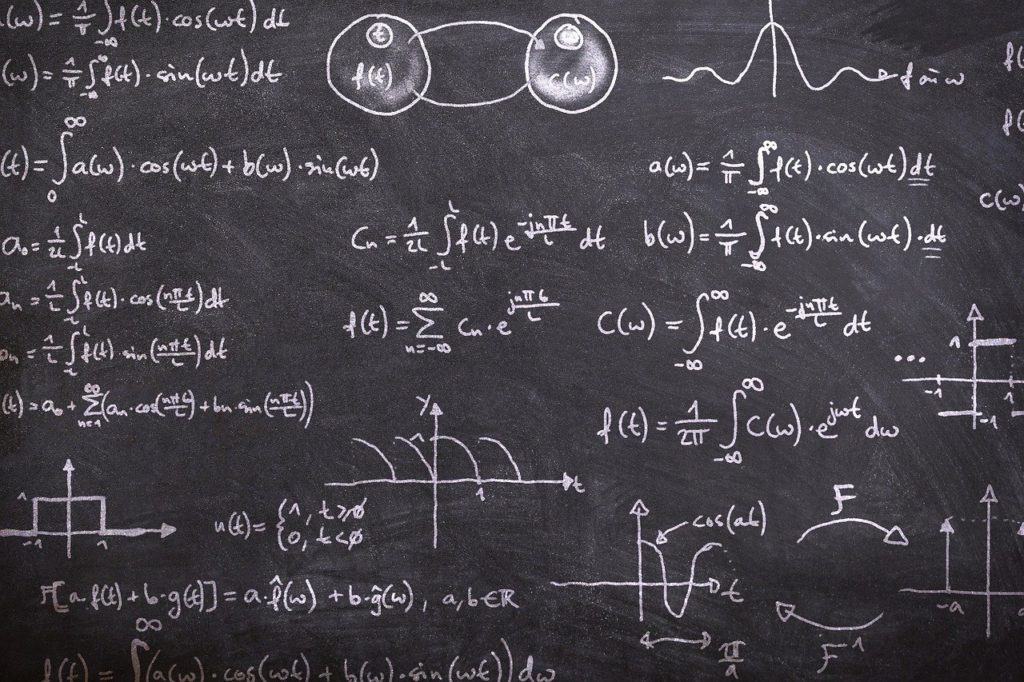 (ω) = 1/π ∫_{-∞} f(t)·cos(ωt) dt
(ω) = 1/π ∫_{-∞}^{∞} f(t)·sin(ωt) dt
f(t)
t
C(ω)
f ω
f(
f(
(t) = ∫_0^∞ a(ω)·cos(ωt) + b(ω)·sin(ωt)
a(ω) = 1/π ∫_{-∞}^{∞} f(t)·cos(ωt) dt
C(ω)
a₀ = 1/2L ∫_{-L}^{L} f(t) dt
Cn = 1/2L ∫_{-L}^{L} f(t) e^{-jnπt/L} dt
b(ω) = 1/π ∫_{-∞}^{∞} f(t)·sin(ωt)·dt
an = 1/L ∫_{-L}^{L} f(t)·cos(nπt/L) dt
f(t) = Σ_{n=-∞}^{∞} Cn·e^{jnπt/L}
C(ω) = ∫_{-∞}^{∞} f(t)·e^{-jnπt/L} dt
n = 1/L ∫_{-L}^{L} f(t)·sin(nπt/L) dt
... 1
-1 1
-1
(t) = a₀ + Σ_{n=1}^{∞} (an·cos(nπt/L) + bn·sin(nπt/L))
f(t) = 1/2π ∫_{-∞}^{∞} C(ω)·e^{jωt} dω
y
1
1 t
1
-1 1
u(t) = {1, t>0
0, t<0
cos(at)
t
π/a
F
F⁻¹
-a
F[a·f(t) + b·g(t)] = a·f̂(ω) + b·ĝ(ω), a,b∈ℝ
f(t) = ∫^∞ (a(ω)·cos(ωt) + b(ω)·sin(ωt)) dω